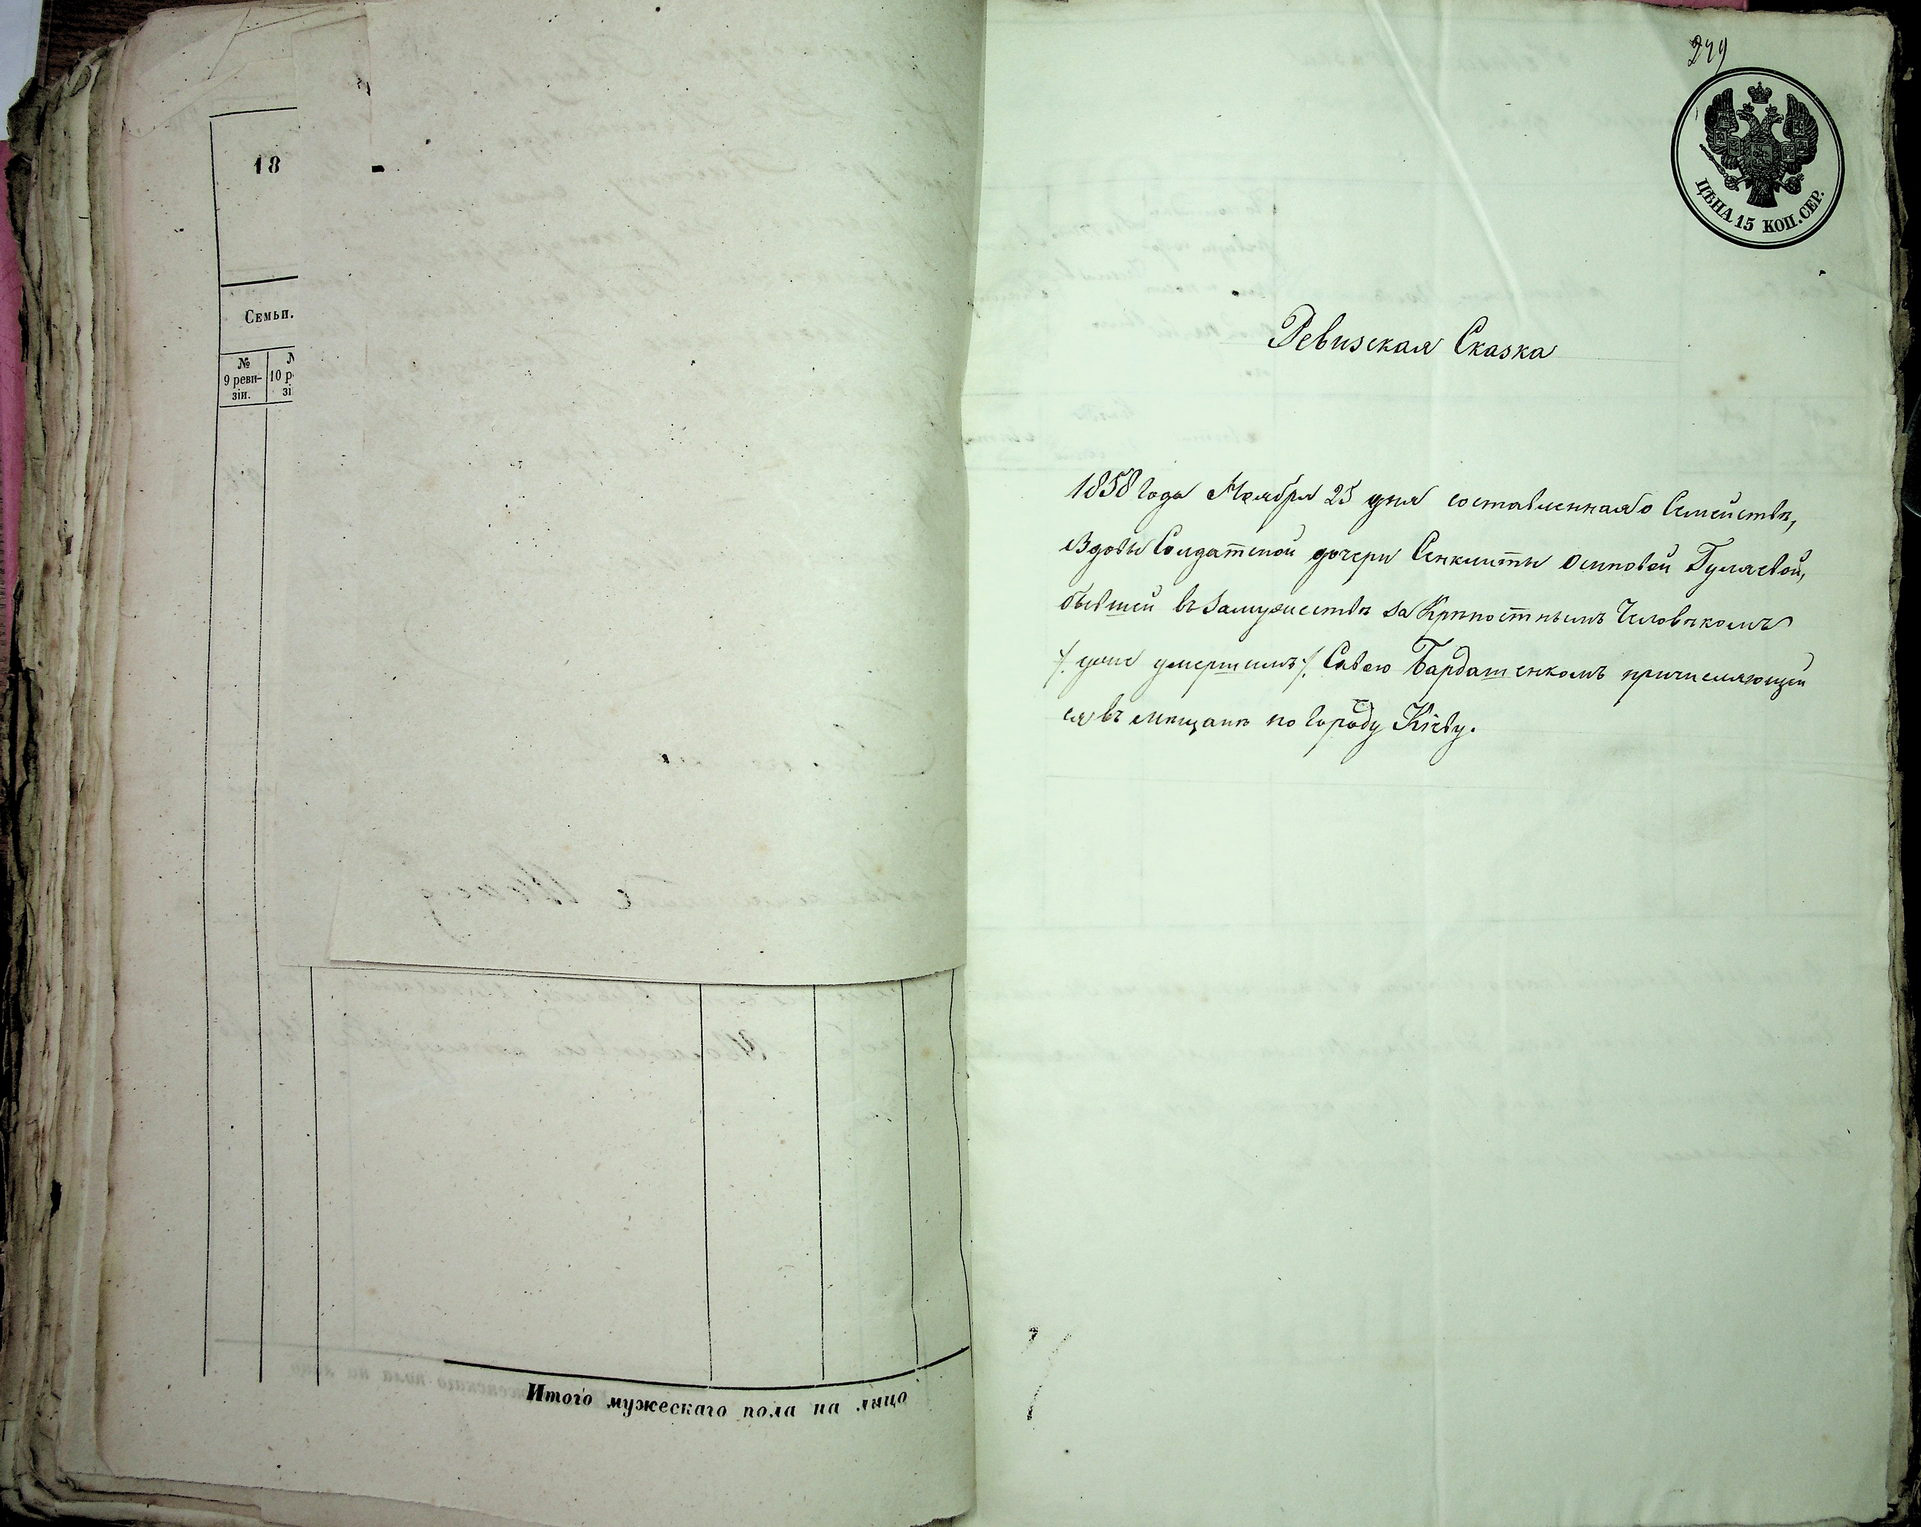 18
Семьи.
№
9 реви-
зіи.
10 р
зі
Итого мужескаго пола на лицо
249
ЦѢНА 15 КОП. СЕР.
Ревизская Сказка
1858 года Ноября 25 дня составленная о Семействѣ,
вдовы Солдатской дочери Сенклиты Осиповой Гуляевой,
бывшей въ замужествѣ за Крѣпостнымъ Человѣкомъ
/. уже умершимъ ./ Савою Бардашенкомъ причисляющей
ся въ мѣщане по городу Кіеву.